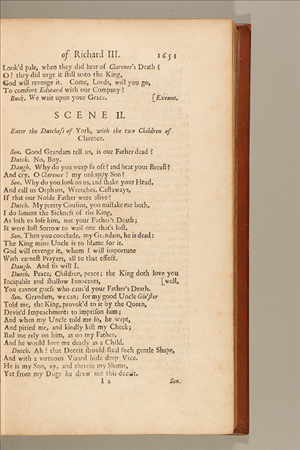 of Richard III. 1651
Look'd pale, when they did hear of Clarence's Death?
O! they did urge it still unto the King,
God will revenge it. Come, Lords, will you go,
To comfort Edward with our Company?
Buck. We wait upon your Grace. [Exeunt.
SCENE II.
Enter the Dutchess of York, with the two Children of
Clarence.
Son. Good Grandam tell us, is our Father dead?
Dutch. No, Boy.
Daugh. Why do you weep so oft? and beat your Breast?
And cry, O Clarence! my unhappy Son?
Son. Why do you look on us, and shake your Head,
And call us Orphans, Wretches, Castaways,
If that our Noble Father were alive?
Dutch. My pretty Cousins, you mistake me both,
I do lament the Sickness of the King,
As loth to lose him, not your Father's Death;
It were lost Sorrow to wail one that's lost.
Son. Then you conclude, my Grandam, he is dead:
The King mine Uncle is to blame for it.
God will revenge it, whom I will importune
With earnest Prayers, all to that effect.
Daugh. And so will I.
Dutch. Peace, Children, peace; the King doth love you
Incapable and shallow Innocents, [well,
You cannot guess who caus'd your Father's Death.
Son. Grandam, we can; for my good Uncle Glo'ster
Told me, the King, provok'd to it by the Queen,
Devis'd Impeachments to imprison him;
And when my Uncle told me so, he wept,
And pitied me, and kindly kist my Cheek;
Bad me rely on him, as on my Father,
And he would love me dearly as a Child.
Dutch. Ah! that Deceit should steal such gentle Shape,
And with a virtuous Vizard hide deep Vice.
He is my Son, ay, and therein my Shame,
Yet from my Dugs he drew not this deceit.
I 2 Son.